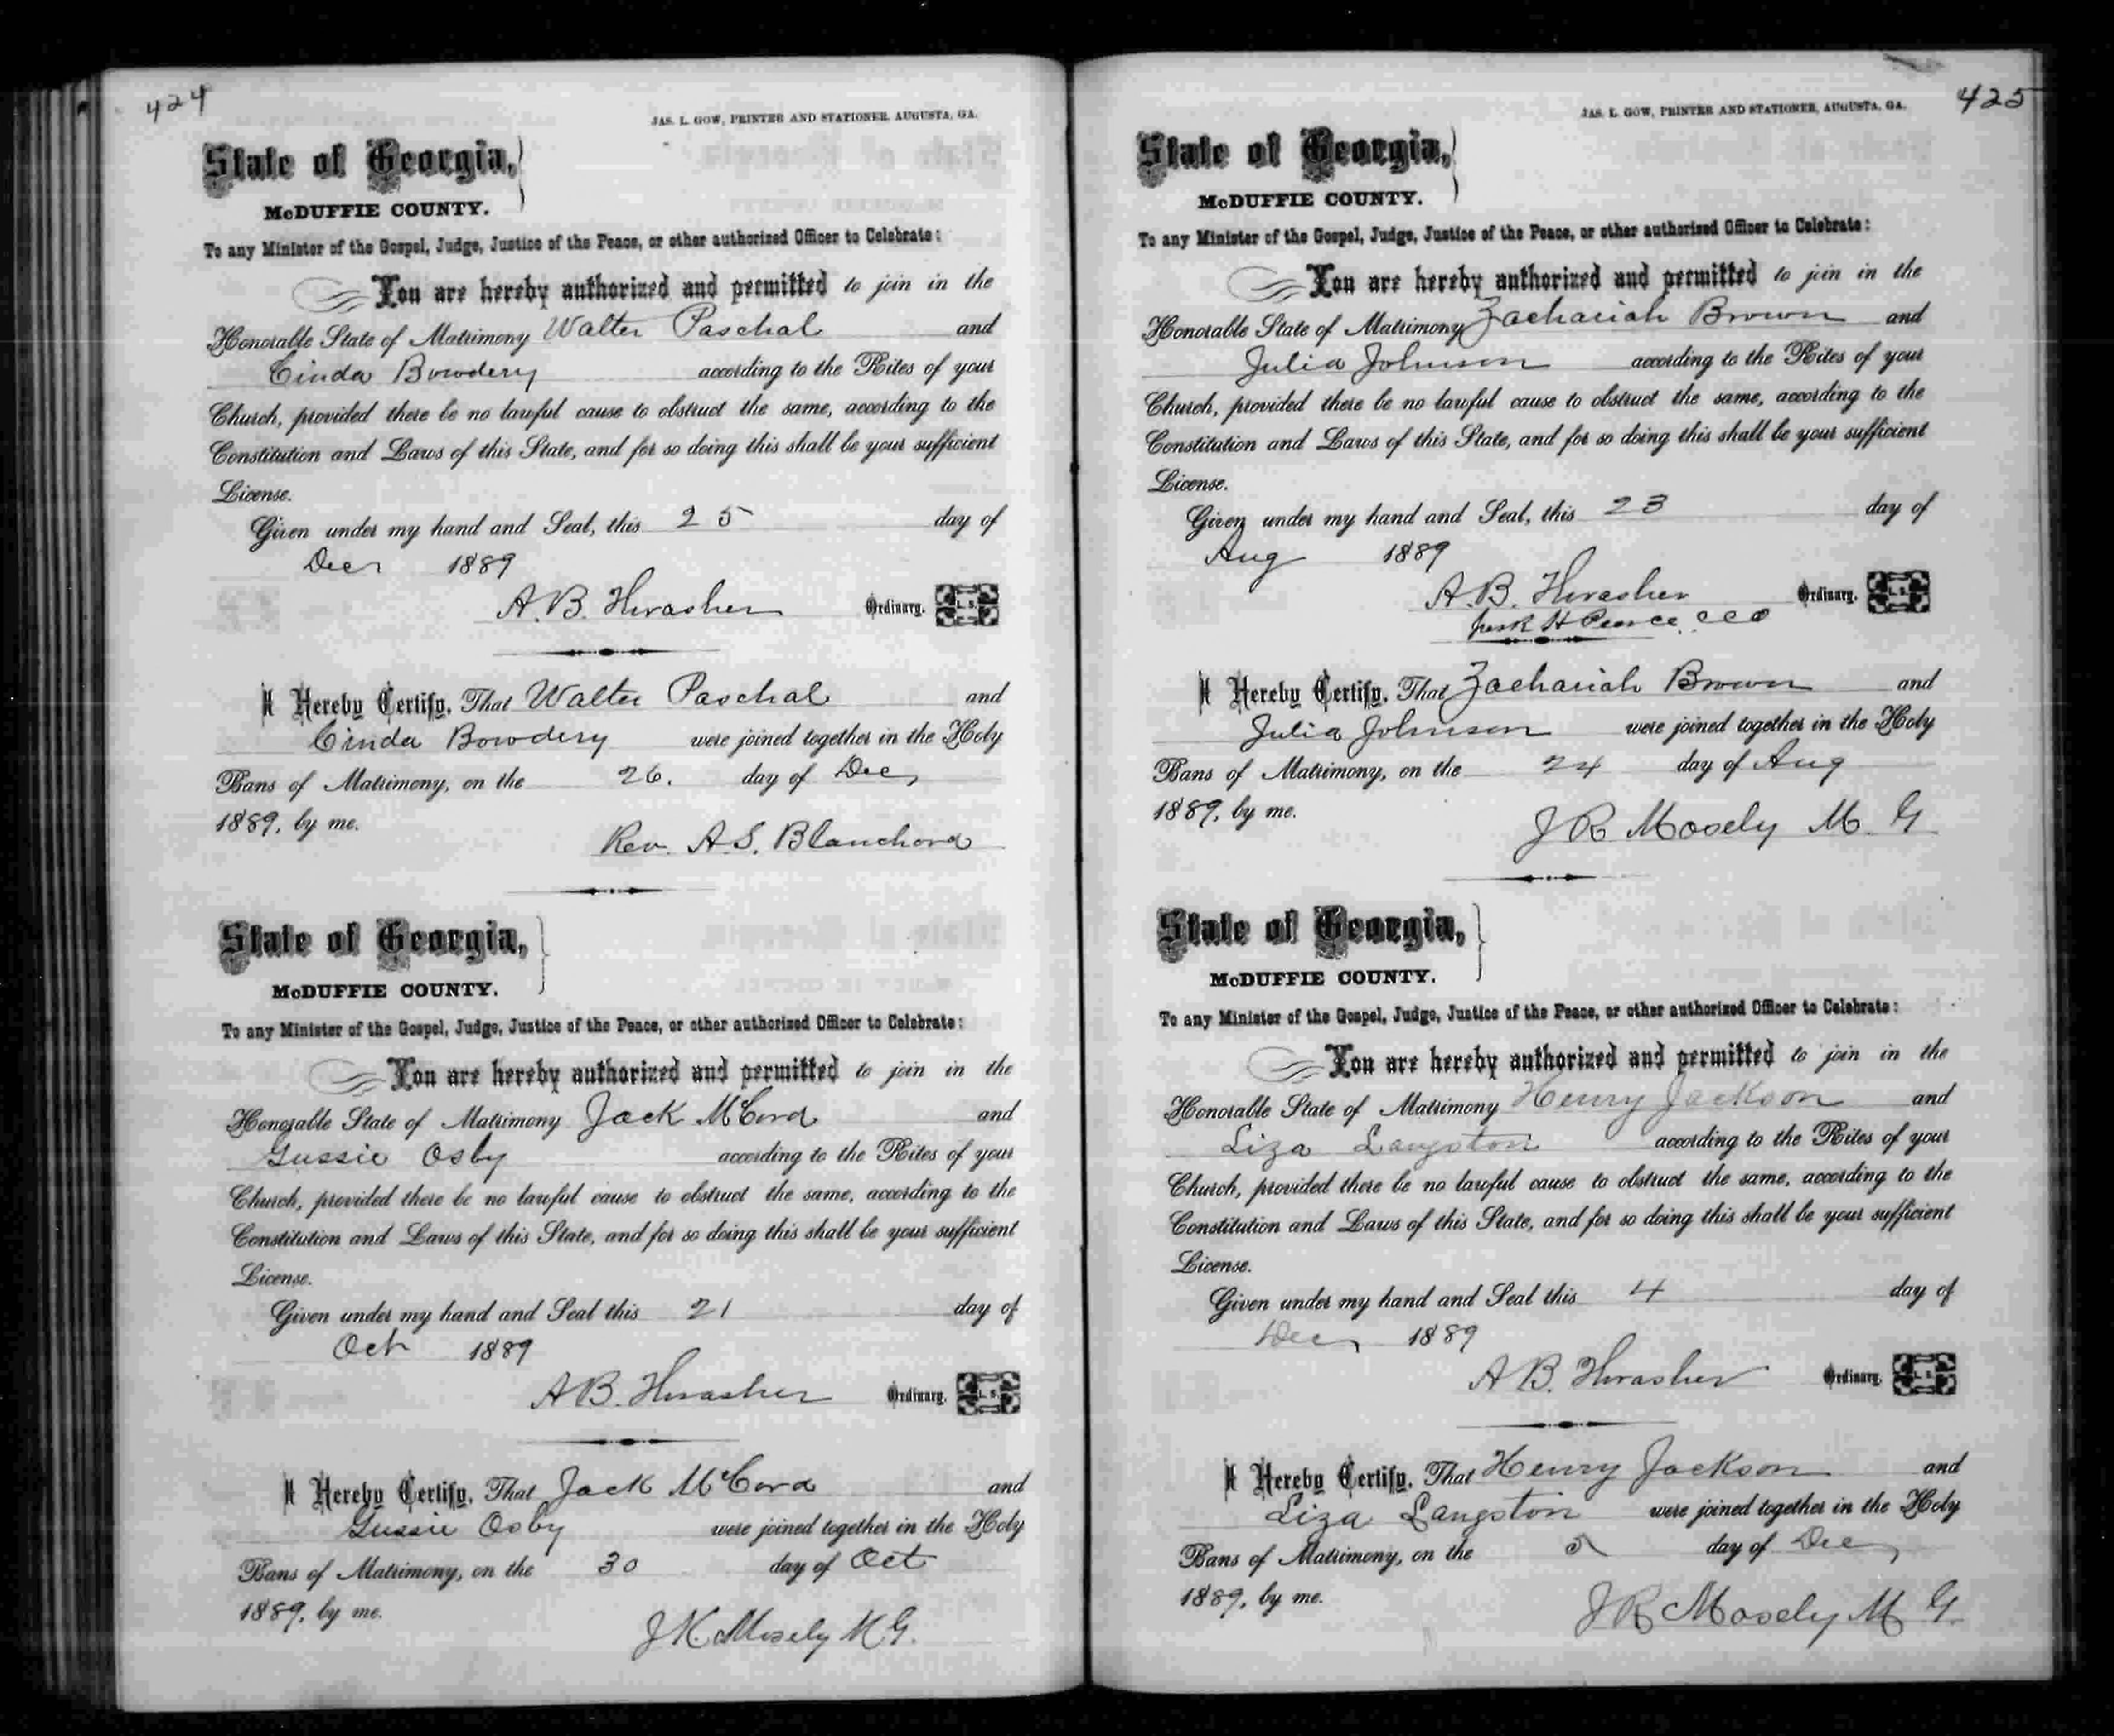 424
JAS. L. GOW, PRINTER AND STATIONER, AUGUSTA, GA.
State of Georgia,
McDUFFIE COUNTY.
To any Minister of the Gospel, Judge, Justice of the Peace, or other authorized Officer to Celebrate:
You are hereby authorized and permitted to join in the
Honorable State of Matrimony Walter Paschal and
Cinda Bowdery according to the Rites of your
Church, provided there be no lawful cause to obstruct the same, according to the
Constitution and Laws of this State, and for so doing this shall be your sufficient
License.
Given under my hand and Seal, this 25 day of
Dec 1889
A. B. Thrasher Ordinary. L. S.
I Hereby Certify, That Walter Paschal and
Cinda Bowdery were joined together in the Holy
Bans of Matrimony, on the 26. day of Dec,
1889, by me.
Rev. A. S. Blanchard
State of Georgia,
McDUFFIE COUNTY.
To any Minister of the Gospel, Judge, Justice of the Peace, or other authorized Officer to Celebrate:
You are hereby authorized and permitted to join in the
Honorable State of Matrimony Jack McCord and
Gussie Osby according to the Rites of your
Church, provided there be no lawful cause to obstruct the same, according to the
Constitution and Laws of this State, and for so doing this shall be your sufficient
License.
Given under my hand and Seal this 21 day of
Oct 1889
A B. Thrasher Ordinary. L. S.
I Hereby Certify, That Jack McCord and
Gussie Osby were joined together in the Holy
Bans of Matrimony, on the 30 day of Oct
1889, by me.
Mosely M. G.
425
JAS. L. GOW, PRINTER AND STATIONER, AUGUSTA, GA.
State of Georgia,
McDUFFIE COUNTY.
To any Minister of the Gospel, Judge, Justice of the Peace, or other authorized Officer to Celebrate:
You are hereby authorized and permitted to join in the
Honorable State of Matrimony Zachariah Brown and
Julia Johnson according to the Rites of your
Church, provided there be no lawful cause to obstruct the same, according to the
Constitution and Laws of this State, and for so doing this shall be your sufficient
License.
Given under my hand and Seal, this 23 day of
Aug 1889
A. B. Thrasher Ordinary. L. S.
H Pearce CCO
I Hereby Certify, That Zachariah Brown and
Julia Johnson were joined together in the Holy
Bans of Matrimony, on the 24 day of Aug
1889, by me.
J R Mosely M. G
State of Georgia,
McDUFFIE COUNTY.
To any Minister of the Gospel, Judge, Justice of the Peace, or other authorized Officer to Celebrate:
You are hereby authorized and permitted to join in the
Honorable State of Matrimony Henry Jackson and
Liza Langston according to the Rites of your
Church, provided there be no lawful cause to obstruct the same, according to the
Constitution and Laws of this State, and for so doing this shall be your sufficient
License.
Given under my hand and Seal this 4 day of
Dec, 1889
A B. Thrasher Ordinary. L. S.
I Hereby Certify, That Henry Jackson and
Liza Langston were joined together in the Holy
Bans of Matrimony, on the 5 day of Dec,
1889, by me.
J R Mosely M G.